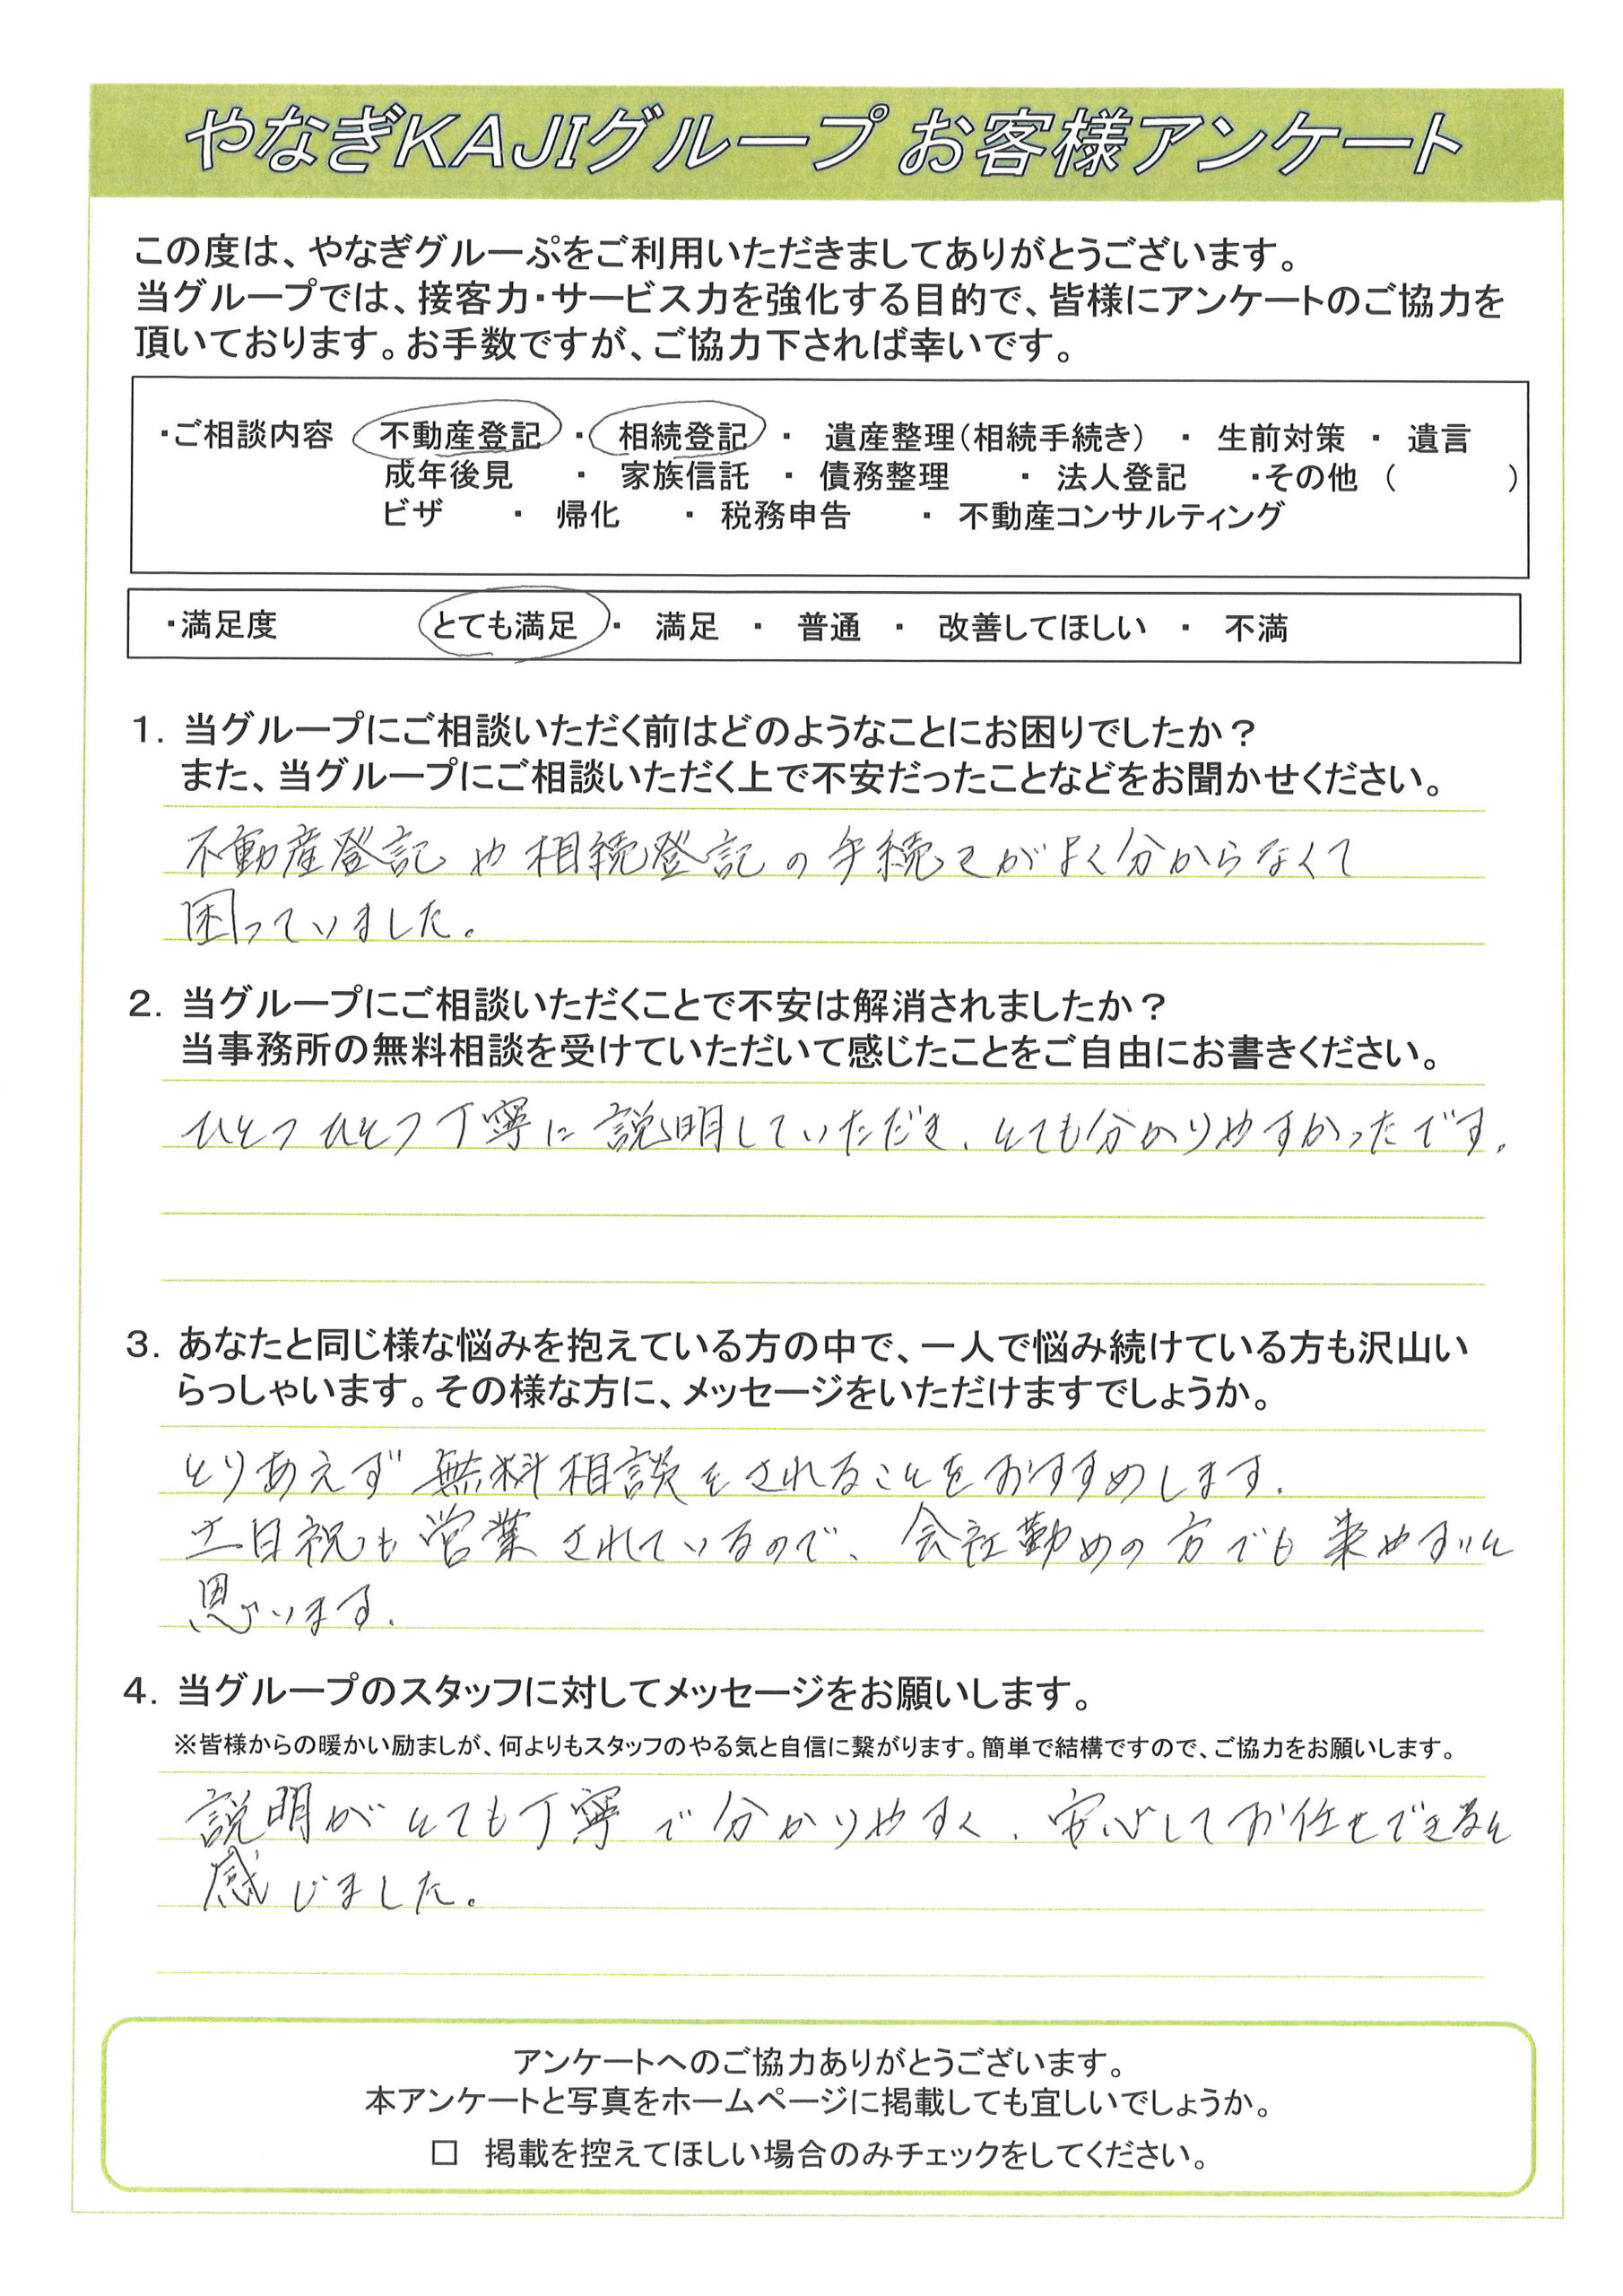 やなぎKAJIグループ お客様アンケート
この度は、やなぎグルーぷをご利用いただきましてありがとうございます。
当グループでは、接客力・サービス力を強化する目的で、皆様にアンケートのご協力を
頂いております。お手数ですが、ご協力下されば幸いです。
・ご相談内容 不動産登記 ・ 相続登記 ・ 遺産整理(相続手続き) ・ 生前対策 ・ 遺言
成年後見 ・ 家族信託 ・ 債務整理 ・ 法人登記 ・その他 ( )
ビザ ・ 帰化 ・ 税務申告 ・ 不動産コンサルティング
・満足度 とても満足 ・ 満足 ・ 普通 ・ 改善してほしい ・ 不満
1. 当グループにご相談いただく前はどのようなことにお困りでしたか？
また、当グループにご相談いただく上で不安だったことなどをお聞かせください。
不動産登記や相続登記の手続きがよく分からなくて
困っていました。
2. 当グループにご相談いただくことで不安は解消されましたか？
当事務所の無料相談を受けていただいて感じたことをご自由にお書きください。
ひとつひとつ丁寧に説明していただき、とても分かりやすかったです。
3. あなたと同じ様な悩みを抱えている方の中で、一人で悩み続けている方も沢山い
らっしゃいます。その様な方に、メッセージをいただけますでしょうか。
とりあえず無料相談をされることをおすすめします。
土日祝も営業されているので、会社勤めの方でも来やすいと
思います。
4. 当グループのスタッフに対してメッセージをお願いします。
※皆様からの暖かい励ましが、何よりもスタッフのやる気と自信に繋がります。簡単で結構ですので、ご協力をお願いします。
説明がとても丁寧で分かりやすく、安心してお任せできると
感じました。
アンケートへのご協力ありがとうございます。
本アンケートと写真をホームページに掲載しても宜しいでしょうか。
□ 掲載を控えてほしい場合のみチェックをしてください。